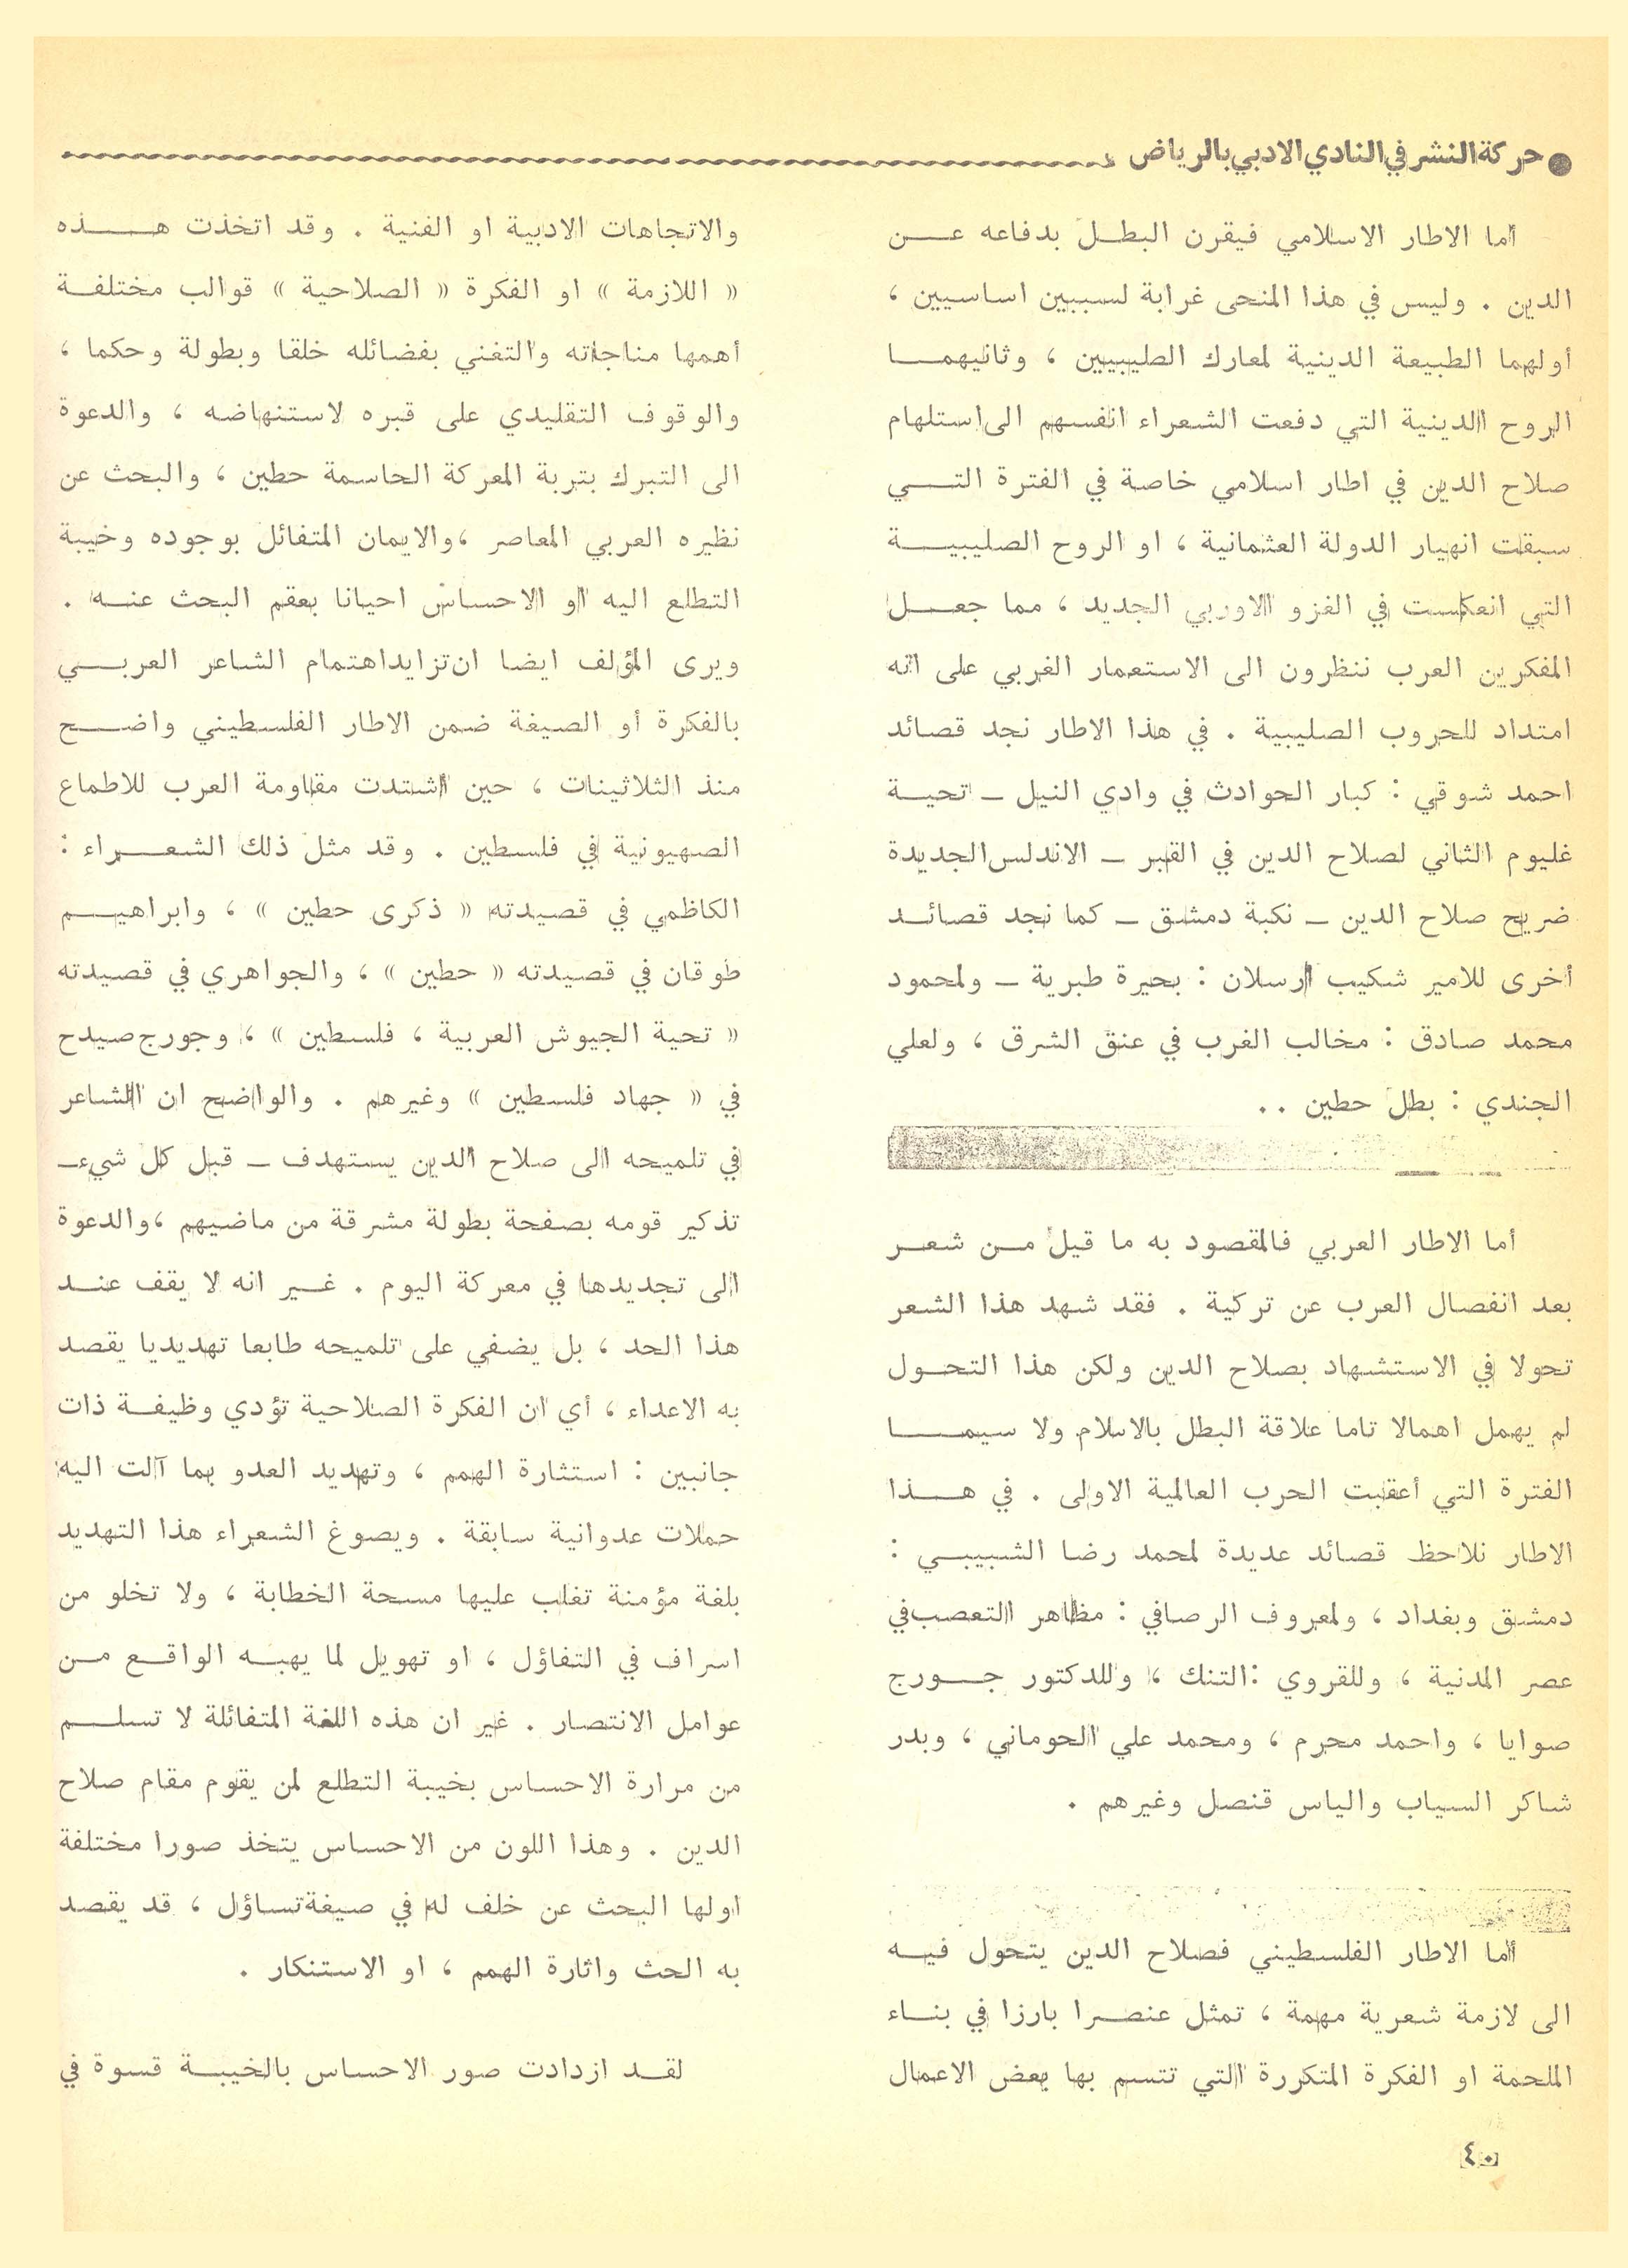 ● حركة النشر في النادي الادبي بالرياض
أما الاطار الاسلامي فيقرن البطل بدفاعه عن
الدين . وليس في هذا المنحى غرابة لسببين اساسيين ،
أولهما الطبيعة الدينية لمعارك الصليبيين ، وثانيهما
الروح الدينية التي دفعت الشعراء انفسهم الى استلهام
صلاح الدين في اطار اسلامي خاصة في الفترة التي
سبقت انهيار الدولة العثمانية ، او الروح الصليبية
التي انعكست في الغزو الاوربي الجديد ، مما جعل
المفكرين العرب ننظرون الى الاستعمار الغربي على انه
امتداد للحروب الصليبية . في هذا الاطار نجد قصائد
احمد شوقي : كبار الحوادث في وادي النيل ـ تحية
غليوم الثاني لصلاح الدين في القبر ـ الاندلس الجديدة
ضريح صلاح الدين ـ نكبة دمشق ـ كما نجد قصائد
أخرى للامير شكيب ارسلان : بحيرة طبرية ـ ولمحمود
محمد صادق : مخالب الغرب في عنق الشرق ، ولعلي
الجندي : بطل حطين . .
أما الاطار العربي فالمقصود به ما قيل من شعر
بعد انفصال العرب عن تركية . فقد شهد هذا الشعر
تحولا في الاستشهاد بصلاح الدين ولكن هذا التحول
لم يهمل اهمالا تاما علاقة البطل بالاسلام ولا سيما
الفترة التي أعقبت الحرب العالمية الاولى . في هذا
الاطار نلاحظ قصائد عديدة لمحمد رضا الشبيبي :
دمشق وبغداد ، ولمعروف الرصافي : مظاهر التعصب في
عصر المدنية ، وللقروي : التنك ، وللدكتور جورج
صوايا ، واحمد محرم ، ومحمد علي الحوماني ، وبدر
شاكر السياب والياس قنصل وغيرهم .
أما الاطار الفلسطيني فصلاح الدين يتحول فيه
الى لازمة شعرية مهمة ، تمثل عنصرا بارزا في بناء
الملحمة او الفكرة المتكررة التي تتسم بها بعض الاعمال
والاتجاهات الادبية او الفنية . وقد اتخذت هذه
« اللازمة » او الفكرة « الصلاحية » قوالب مختلفة
أهمها مناجاته والتغني بفضائله خلقا وبطولة وحكما ،
والوقوف التقليدي على قبره لاستنهاضه ، والدعوة
الى التبرك بتربة المعركة الحاسمة حطين ، والبحث عن
نظيره العربي المعاصر ، والايمان المتفائل بوجوده وخيبة
التطلع اليه او الاحساس احيانا بعقم البحث عنه .
ويرى المؤلف ايضا ان تزايد اهتمام الشاعر العربي
بالفكرة أو الصيغة ضمن الاطار الفلسطيني واضح
منذ الثلاثينات ، حين اشتدت مقاومة العرب للاطماع
الصهيونية في فلسطين . وقد مثل ذلك الشعراء :
الكاظمي في قصيدته « ذكرى حطين » ، وابراهيم
طوقان في قصيدته « حطين » ، والجواهري في قصيدته
« تحية الجيوش العربية ، فلسطين » ، وجورج صيدح
في « جهاد فلسطين » وغيرهم . والواضح ان الشاعر
في تلميحه الى صلاح الدين يستهدف ـ قبل كل شيء ـ
تذكير قومه بصفحة بطولة مشرقة من ماضيهم ، والدعوة
الى تجديدها في معركة اليوم . غير انه لا يقف عند
هذا الحد ، بل يضفي على تلميحه طابعا تهديديا يقصد
به الاعداء ، أي ان الفكرة الصلاحية تؤدي وظيفة ذات
جانبين : استثارة الهمم ، وتهديد العدو بما آلت اليه
حملات عدوانية سابقة . ويصوغ الشعراء هذا التهديد
بلغة مؤمنة تغلب عليها مسحة الخطابة ، ولا تخلو من
اسراف في التفاؤل ، او تهويل لما يهبه الواقع من
عوامل الانتصار . غير ان هذه اللغة المتفائلة لا تسلم
من مرارة الاحساس بخيبة التطلع لمن يقوم مقام صلاح
الدين . وهذا اللون من الاحساس يتخذ صورا مختلفة
اولها البحث عن خلف له في صيغة تساؤل ، قد يقصد
به الحث واثارة الهمم ، او الاستنكار .
لقد ازدادت صور الاحساس بالخيبة قسوة في
٤٠